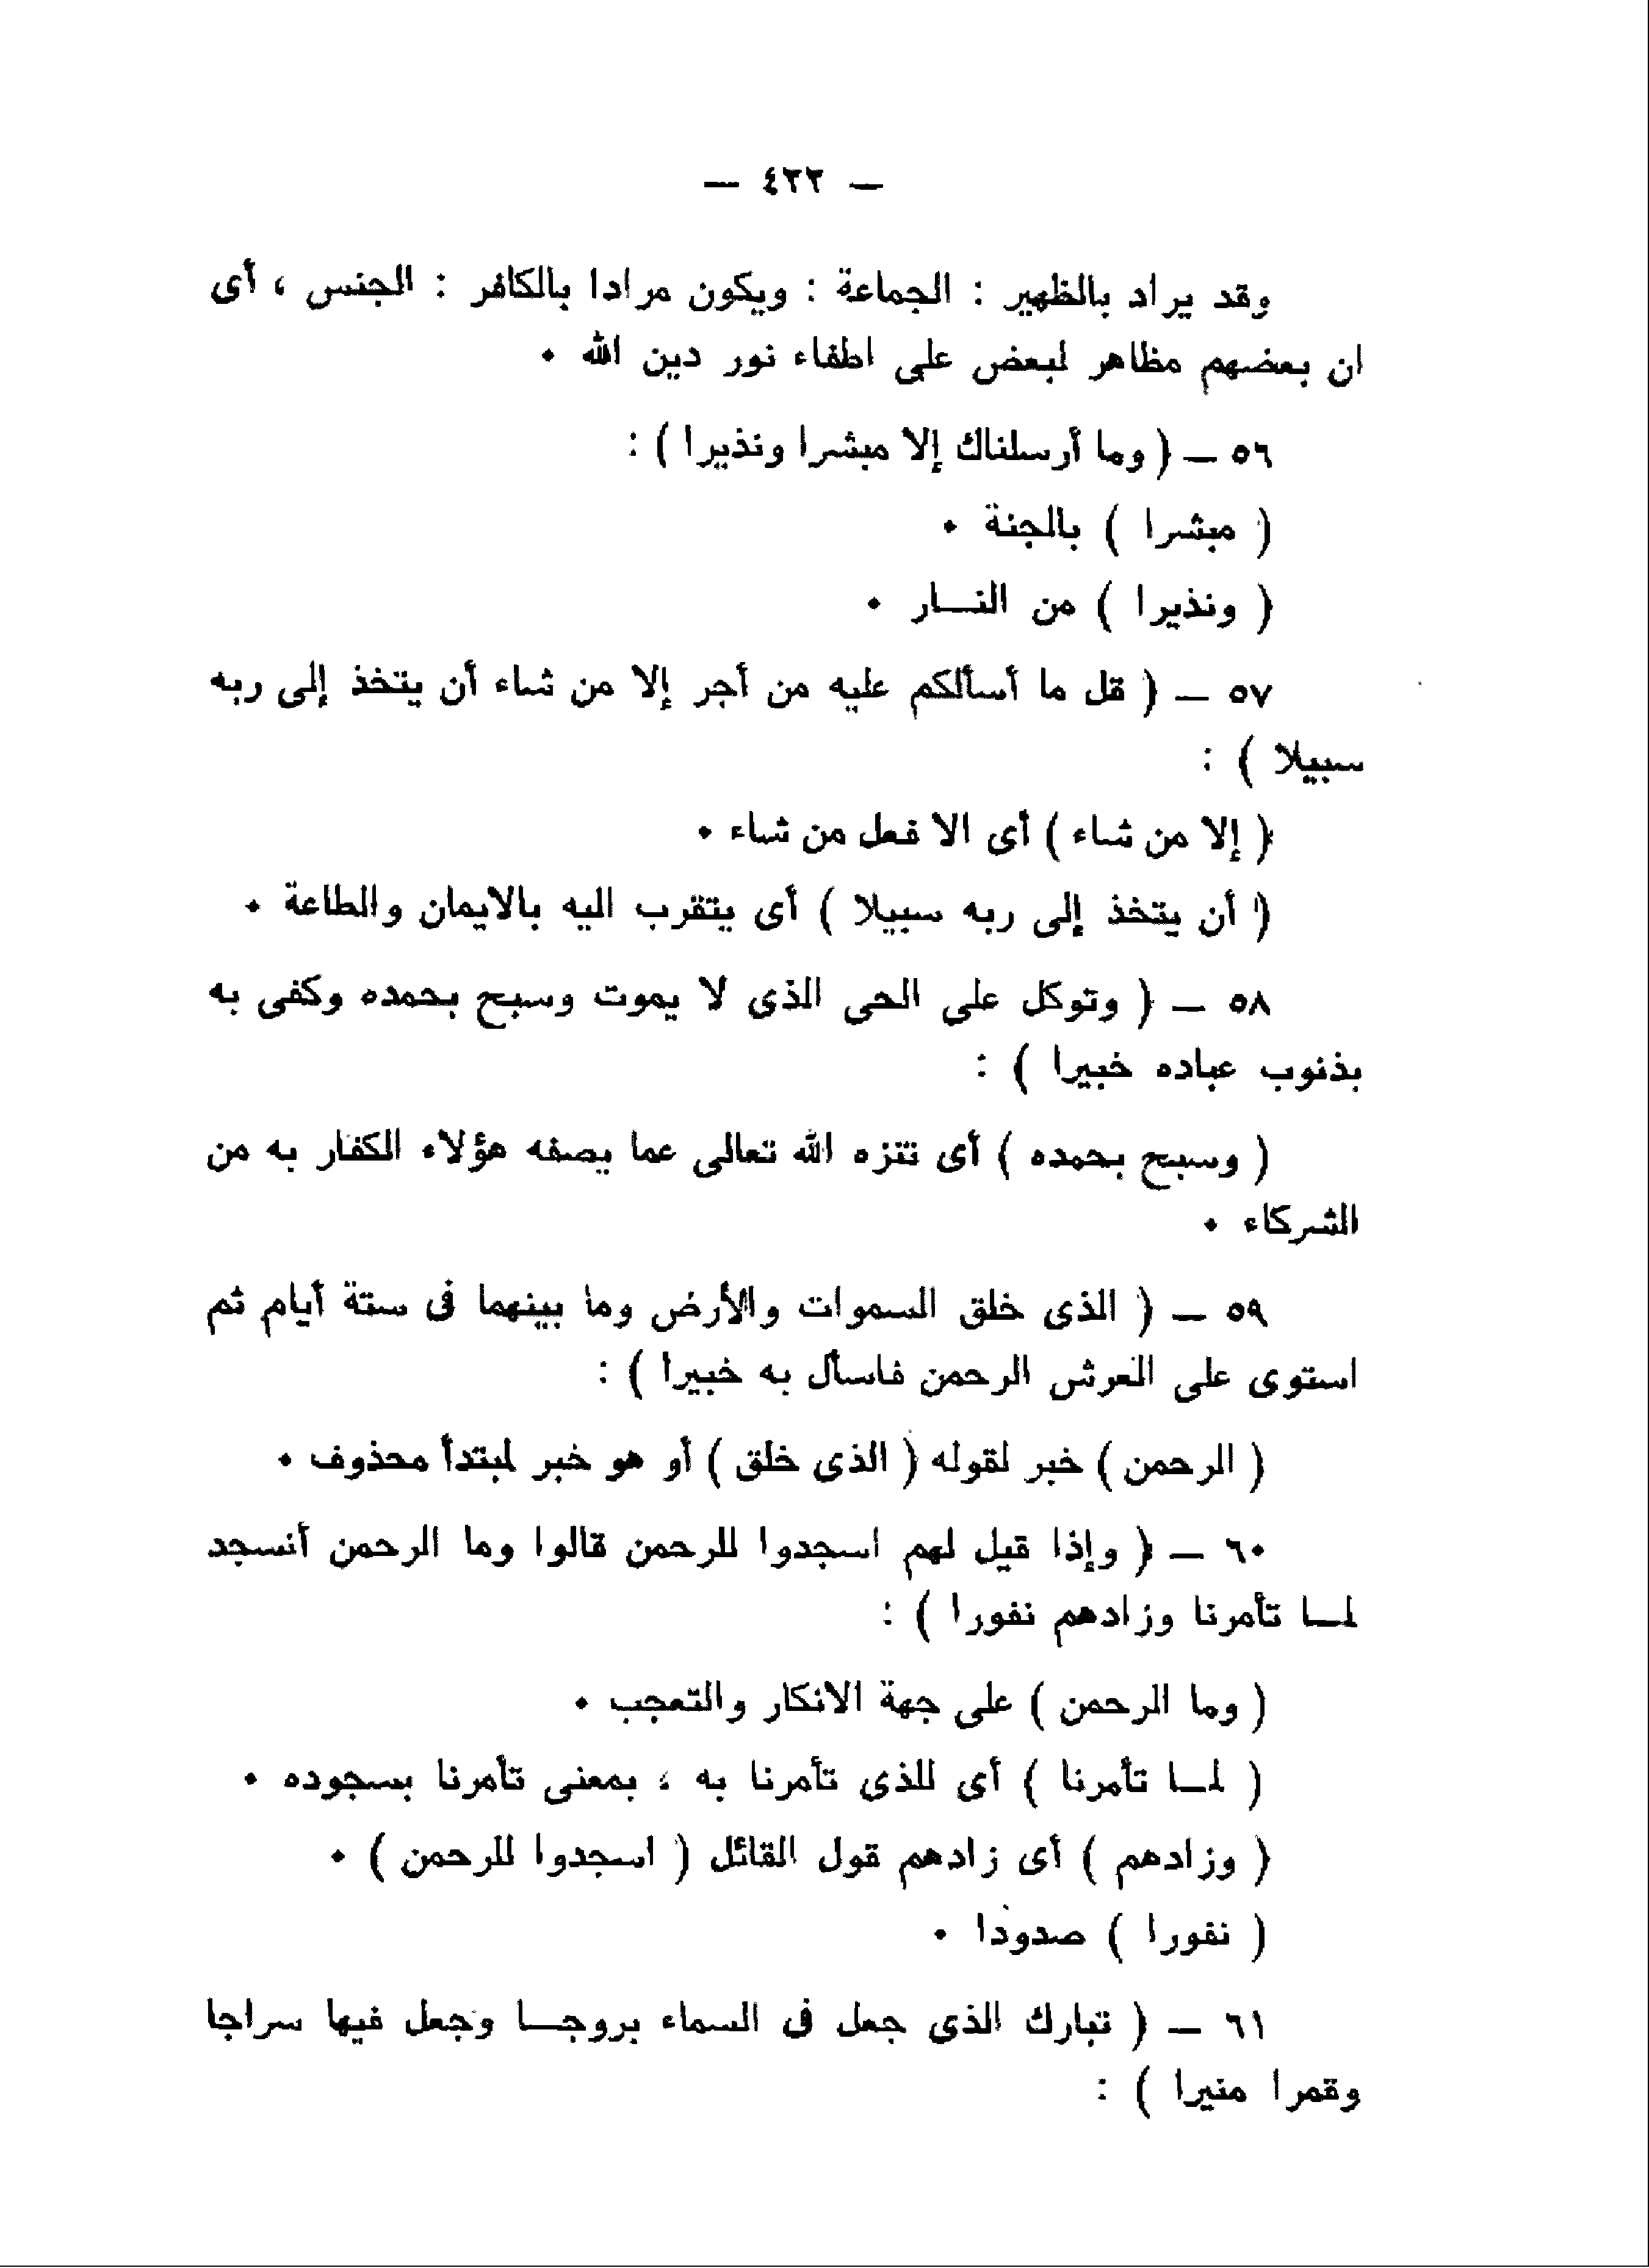 — ٤٢٢ —
وقد يراد بالظهير : الجماعة : ويكون مرادا بالكافر : الجنس ، أى
ان بعضهم مظاهر لبعض على اطفاء نور دين الله ٠
٥٦ — ( وما أرسلناك إلا مبشرا ونذيرا ) :
( مبشرا ) بالجنة ٠
( ونذيرا ) من النـــار ٠
٥٧ — ( قل ما أسألكم عليه من أجر إلا من شاء أن يتخذ إلى ربه
سبيلا ) :
( إلا من شاء ) أى الا فعل من شاء ٠
( أن يتخذ إلى ربه سبيلا ) أى يتقرب اليه بالايمان والطاعة ٠
٥٨ — ( وتوكل على الحى الذى لا يموت وسبح بحمده وكفى به
بذنوب عباده خبيرا ) :
( وسبح بحمده ) أى تنزه الله تعالى عما يصفه هؤلاء الكفار به من
الشركاء ٠
٥٩ — ( الذى خلق السموات والأرض وما بينهما فى ستة أيام ثم
استوى على العرش الرحمن فاسأل به خبيرا ) :
( الرحمن ) خبر لقوله ( الذى خلق ) أو هو خبر لمبتدأ محذوف ٠
٦٠ — ( وإذا قيل لهم اسجدوا للرحمن قالوا وما الرحمن أنسجد
لمــا تأمرنا وزادهم نفورا ) :
( وما الرحمن ) على جهة الانكار والتعجب ٠
( لمــا تأمرنا ) أى للذى تأمرنا به ، بمعنى تأمرنا بسجوده ٠
( وزادهم ) أى زادهم قول القائل ( اسجدوا للرحمن ) ٠
( نفورا ) صدودا ٠
٦١ — ( تبارك الذى جعل فى السماء بروجــا وجعل فيها سراجا
وقمرا منيرا ) :